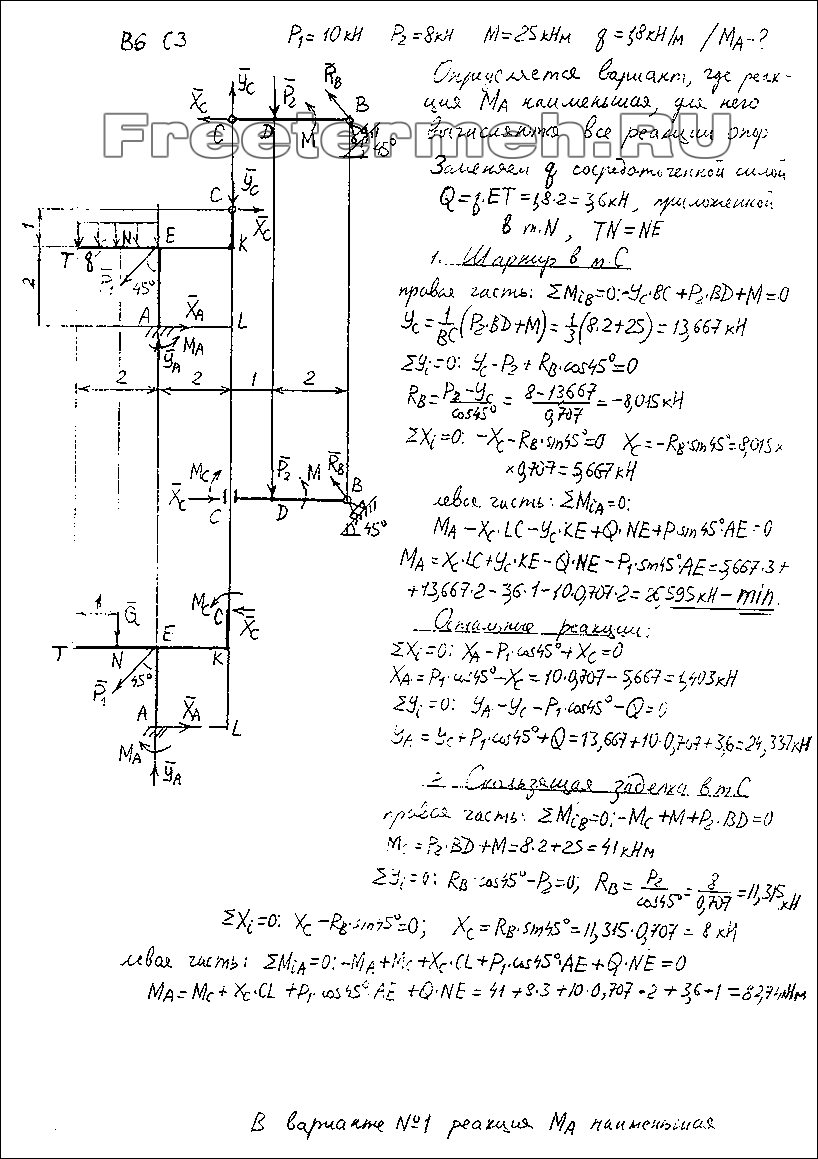 В6 С3 P₁=10кН P₂=8кН M=25кНм q=1,8кН/м /M_A-?
Определяется вариант, где реак-
ция M_A наименьшая, для него
вычисляются все реакции опор
Freetermeh.RU
Заменяем q сосредоточенной силой
Q=q·ET=1,8·2=3,6кН, приложенной
в т.N, TN=NE
1. Шарнир в т.С
правая часть: ΣM_iB=0: -Y_C·BC+P₂·BD+M=0
Y_C=1/BC(P₂·BD+M)=1/3(8·2+25)=13,667 кН
ΣY_i=0: Y_C-P₂+R_B·cos45°=0
R_B=(P₂-Y_C)/cos45°=(8-13,667)/0,707=-8,015кН
ΣX_i=0: -X_C-R_B·sin45°=0 X_C=-R_B·sin45°=8,015×
×0,707=5,667кН
левая часть: ΣM_iA=0:
M_A-X_C·LC-Y_C·KE+Q·NE+P₁sin45°AE=0
M_A=X_C·LC+Y_C·KE-Q·NE-P₁·sin45°AE=5,667·3+
+13,667·2-3,6·1-10·0,707·2=26,595кН-min.
Остальные реакции:
ΣX_i=0: X_A-P₁·cos45°+X_C=0
X_A=P₁·cos45°-X_C=10·0,707-5,667=1,403кН
ΣY_i=0: Y_A-Y_C-P₁·cos45°-Q=0
Y_A=Y_C+P₁·cos45°+Q=13,667+10·0,707+3,6=24,337кН
2. Скользящая заделка в т.С
правая часть: ΣM_iB=0: -M_C+M+P₂·BD=0
M_C=P₂·BD+M=8·2+25=41кНм
ΣY_i=0: R_B·cos45°-P₂=0; R_B=P₂/cos45°=8/0,707=11,315кН
ΣX_i=0: X_C-R_B·sin45°=0; X_C=R_B·sin45°=11,315·0,707=8 кН
левая часть: ΣM_iA=0: -M_A+M_C+X_C·CL+P₁·cos45°AE+Q·NE=0
M_A=M_C+X_C·CL+P₁·cos45°·AE+Q·NE=41+8·3+10·0,707·2+3,6·1=82,74кНм
В варианте №1 реакция M_A наименьшая
Y_C
X_C P₂ R_B
C D M B
45°
Y_C
C X_C
1
T q N E K
P₁ 45°
2
A X_A L
Y_A M_A
2 2 1 2
M_C P₂ M R_B
X_C C D B
45°
M_C C X_C
Q
T N E K
P₁ 45°
A X_A L
M_A
Y_A